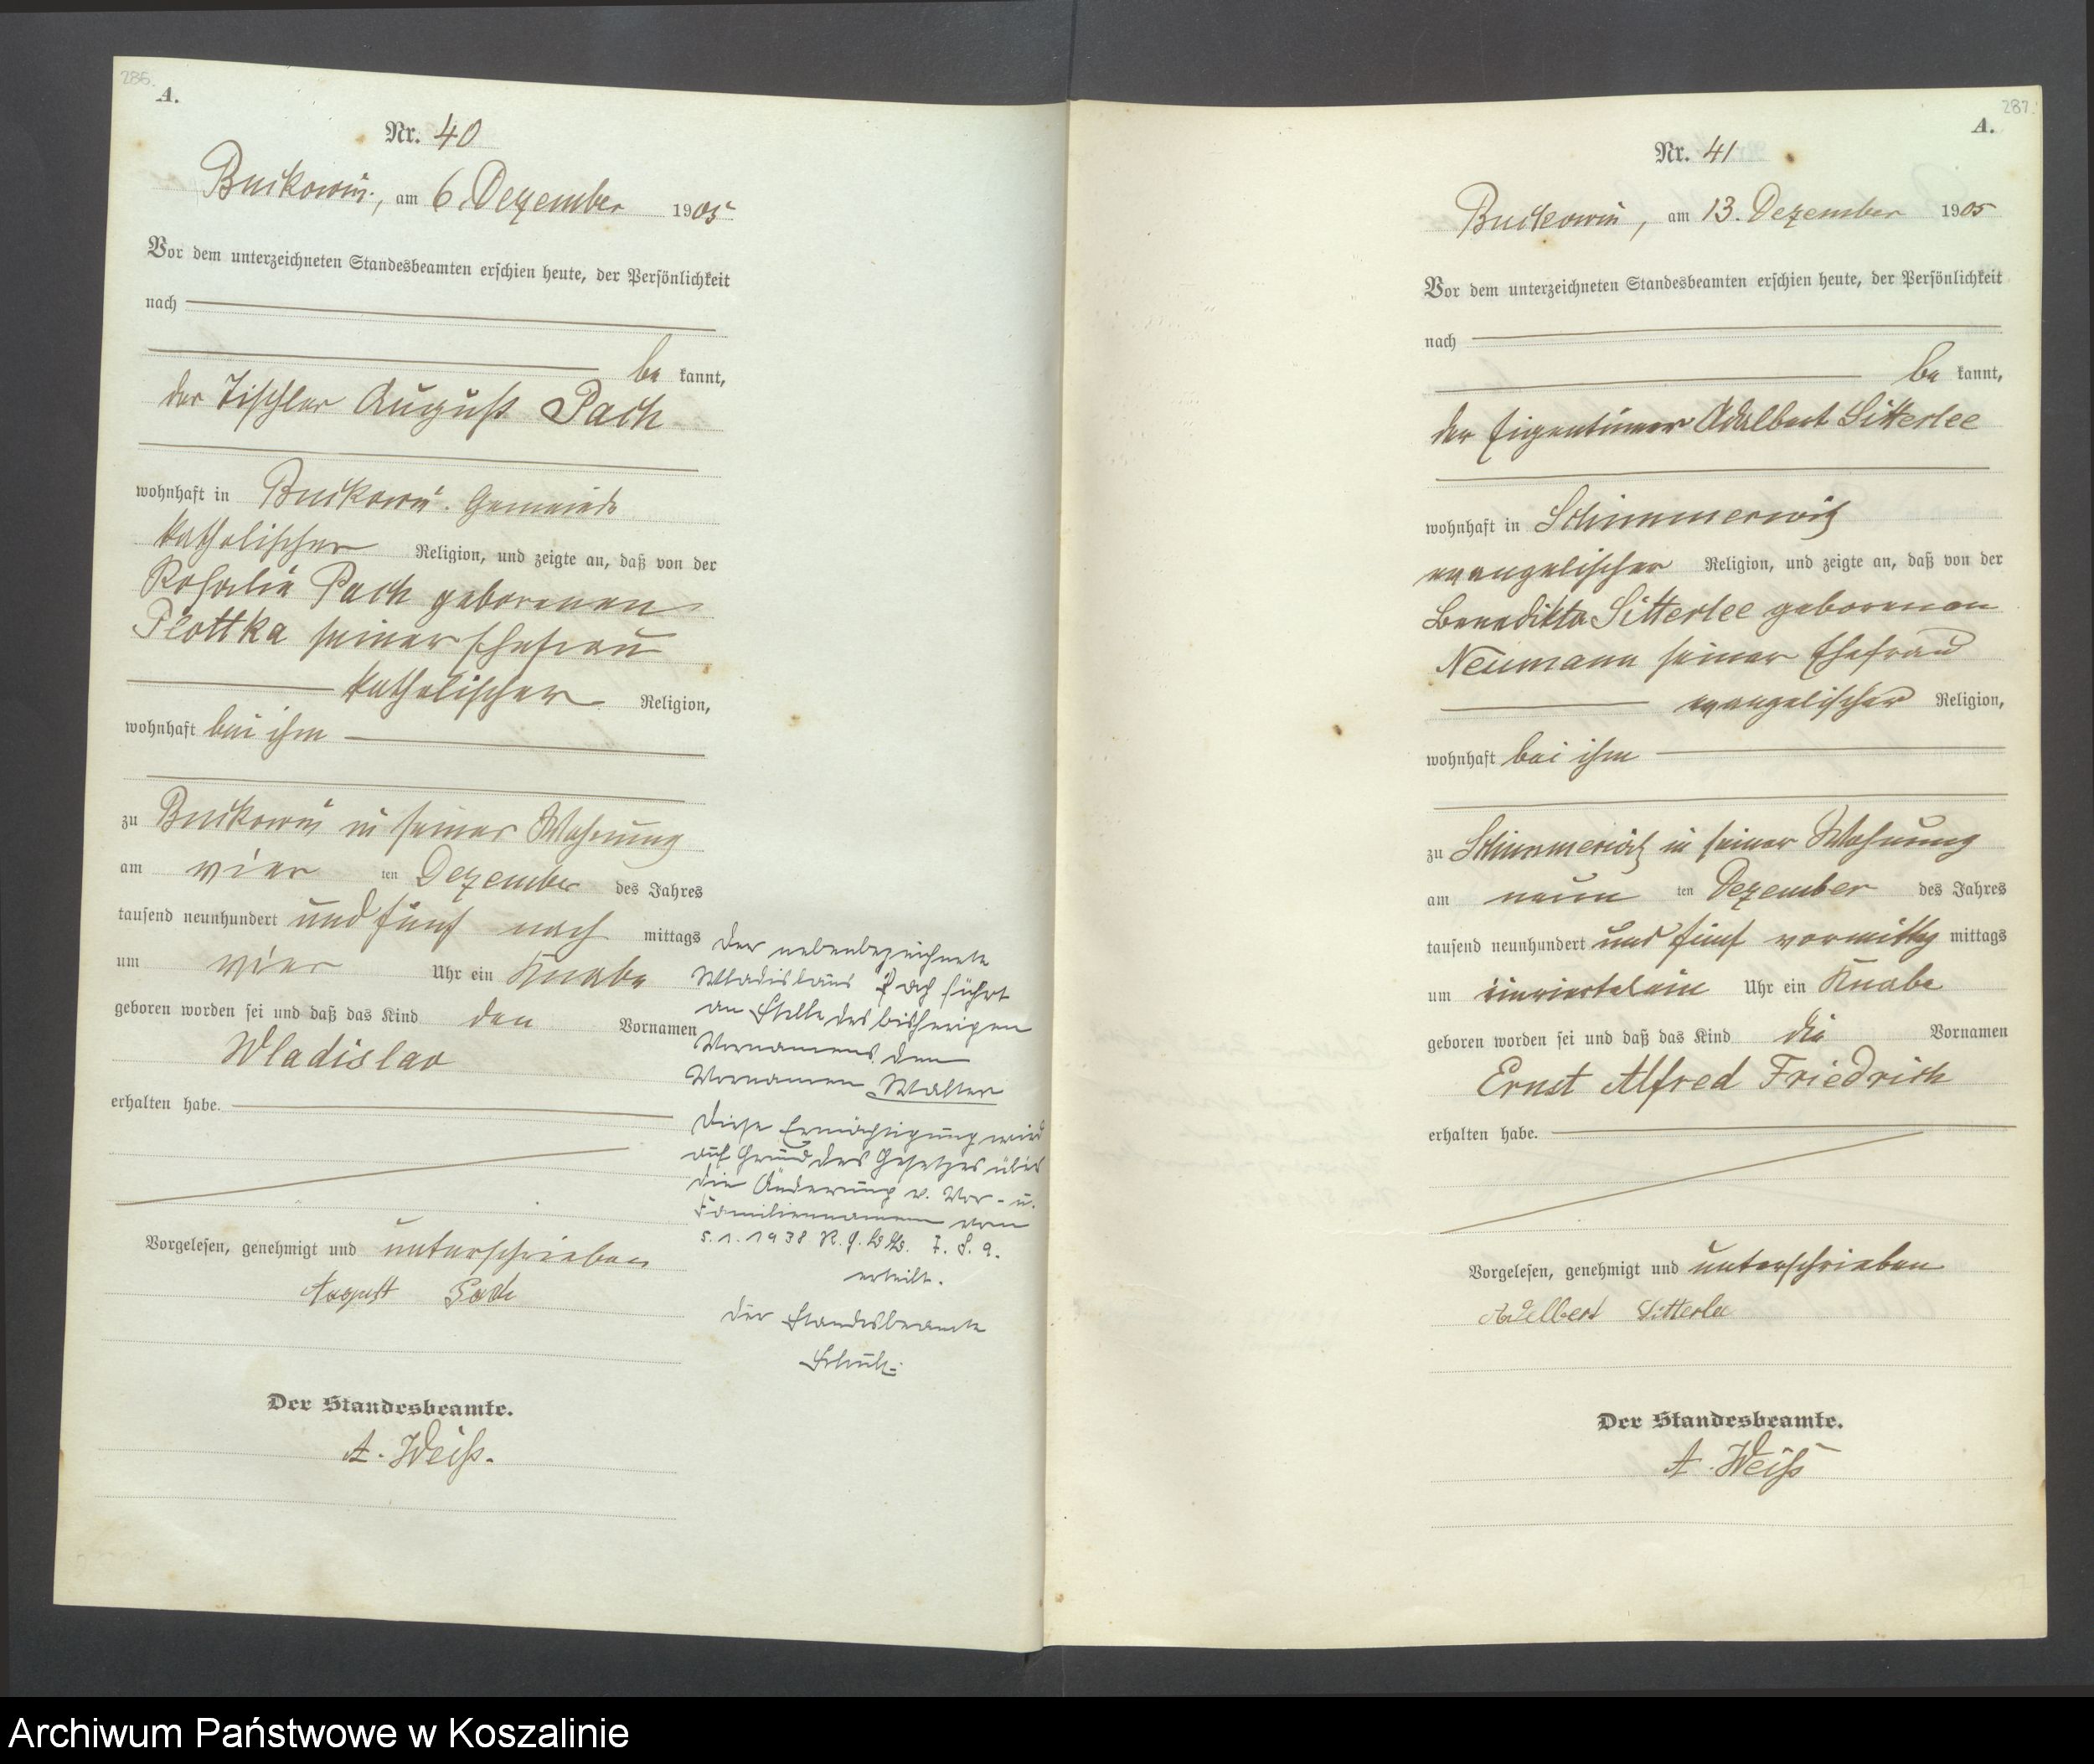 286.
A.
Nr. 40
Buckowin, am 6. Dezember 1905
Vor dem unterzeichneten Standesbeamten erschien heute, der Persönlichkeit
nach
be kannt,
der Tischler August Pach
wohnhaft in Buckowin Gemeinde
katholischer Religion, und zeigte an, daß von der
Rosalie Pach geborenen
Plottka seiner Ehefrau
katholischer Religion,
wohnhaft bei ihm
zu Buckowin in seiner Wohnung
am vier ten Dezember des Jahres
tausend neunhundert und fünf nach mittags
um vier Uhr ein Knabe
geboren worden sei und daß das Kind den Vornamen
Wladislav
erhalten habe.
Vorgelesen, genehmigt und unterschrieben
August Pach
Der Standesbeamte.
A. Weiß.
Der nebenbezeichnete
Wladislaus Pach führt
an Stelle des bisherigen
Vornamens den
Vornamen Walter
Diese Ermächtigung wird
auf Grund des Gesetzes über
die Änderung v. Vor- u.
Familiennamen vom
5.1.1938 R.G.Bl. I. S. 9.
erteilt.
Der Standesbeamte
287.
A.
Nr. 41
Buckowin, am 13. Dezember 1905
Vor dem unterzeichneten Standesbeamten erschien heute, der Persönlichkeit
nach
be kannt,
der Eigentümer Adalbert Sitterlee
wohnhaft in Schimmerwitz
evangelischer Religion, und zeigte an, daß von der
Benedikta Sitterlee geborenen
Neumann seiner Ehefrau
evangelischer Religion,
wohnhaft bei ihm
zu Schimmerwitz in seiner Wohnung
am neun ten Dezember des Jahres
tausend neunhundert und fünf vormittag mittags
um einviertelein Uhr ein Knabe
geboren worden sei und daß das Kind die Vornamen
Ernst Alfred Friedrich
erhalten habe.
Vorgelesen, genehmigt und unterschrieben
Adelbert Sitterlee
Der Standesbeamte.
A. Weiß
Archiwum Państwowe w Koszalinie